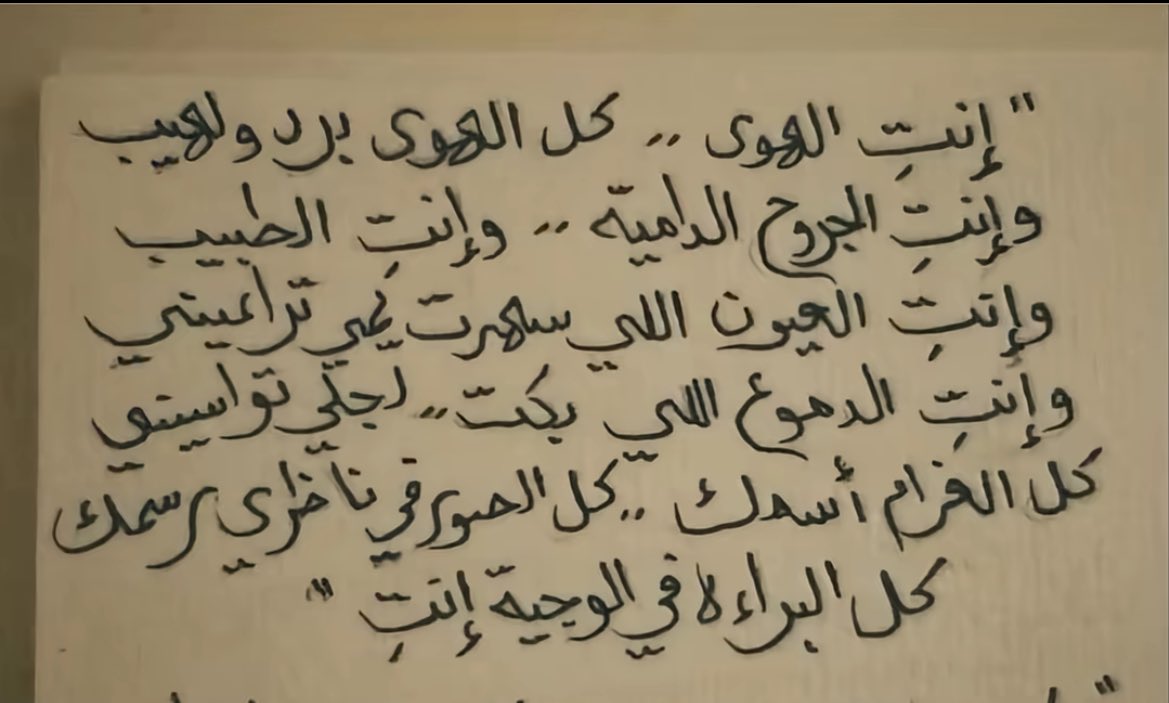 "إنتِ الهوى .. كل الهوى برد ولهيب
وإنتِ الجروح الدامية .. وإنتِ الطبيب
وإنتِ العيون اللي سهرت يمي تراعيني
وإنتِ الدموع اللي بكت .. لجلي تواسيني
كل الغرام أسمك .. كل الصور في ناظري رسمك
كل البراءة في الوجية إنتِ "